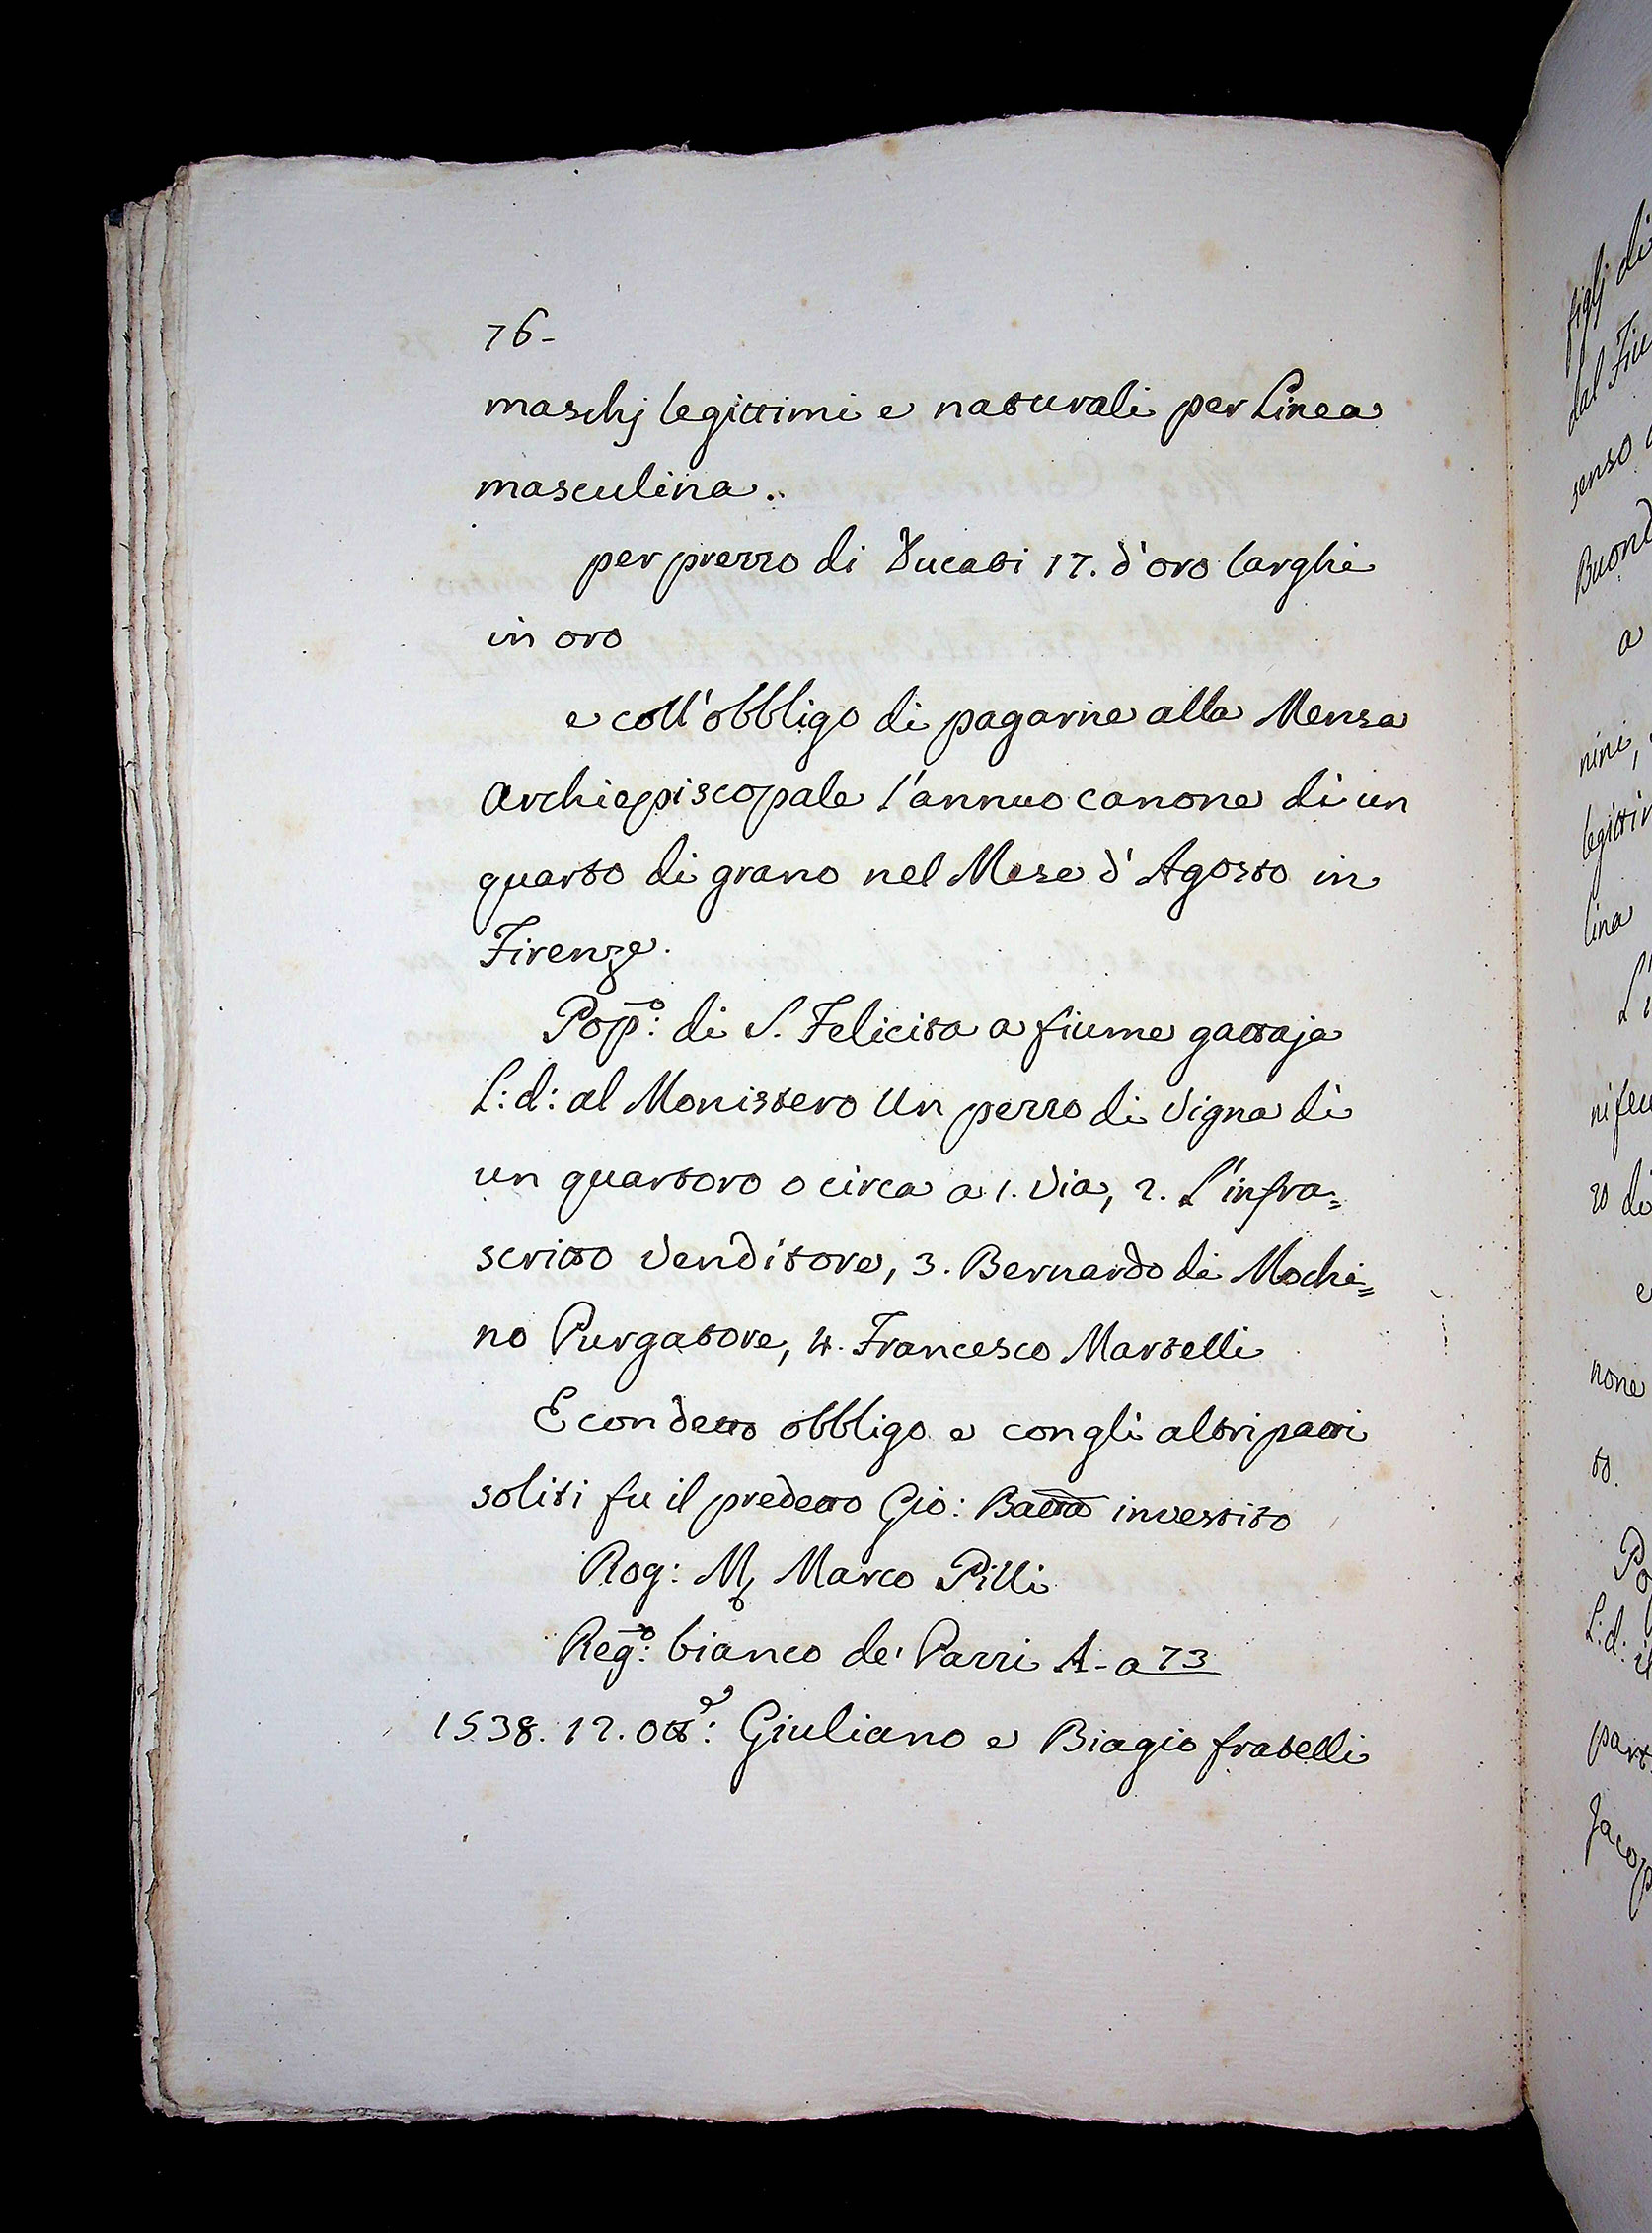 76-
maschj legittimi e naturali per Linea
masculina.
per prezzo di Ducati 17. d'oro larghi
in oro
e coll'obbligo di pagarne alla Mensa
Archiepiscopale l'annuo canone di un
quarto di grano nel Mese d'Agosto in
Firenze.
Pop:o di S. Felicita a fiume gattaja
L: d: al Monistero Un pezzo di Vigna di
un quartoro o circa a 1. Via, 2. L'infra=
scritto Venditore, 3. Bernardo di Mochi=
no Purgatore, 4. Francesco Martelli
E con detto obbligo e con gli altri patti
soliti fu il predetto Gio: Batta investito
Rog: M Marco Pilli
Reg:o bianco de' Pazzi A- a 73
1538. 12. Ott:e Giuliano e Biagio fratelli
figlj di
dal Fiu
senso
Buond
a
nini,
legitti
lina
L'i
ni feu
zo di
e
none
to.
Po
L: d: il
part
Jacop